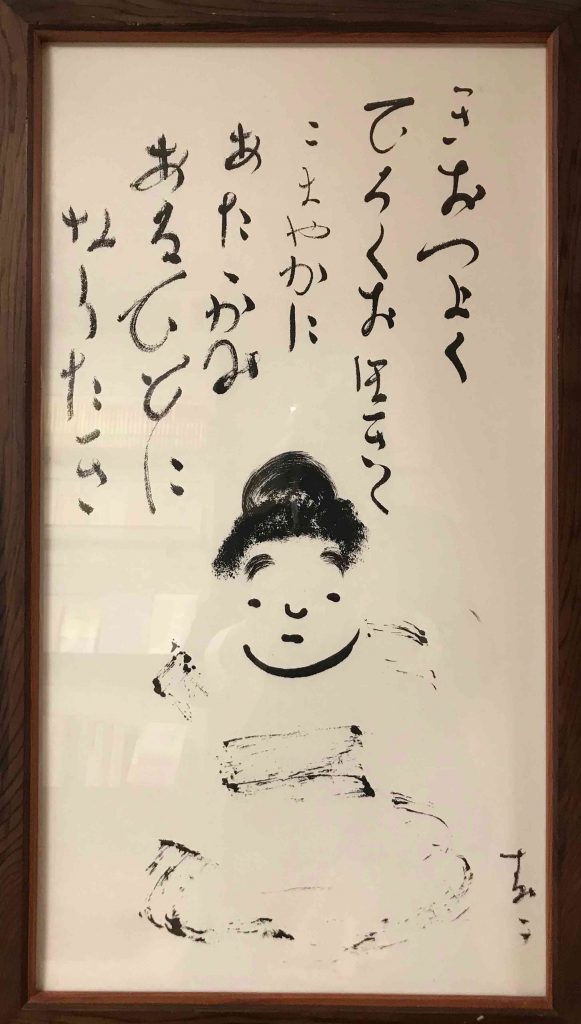 きおつよく
ひろくおほきく
こまやかに
あたゝかみ
あるひとに
なりたき